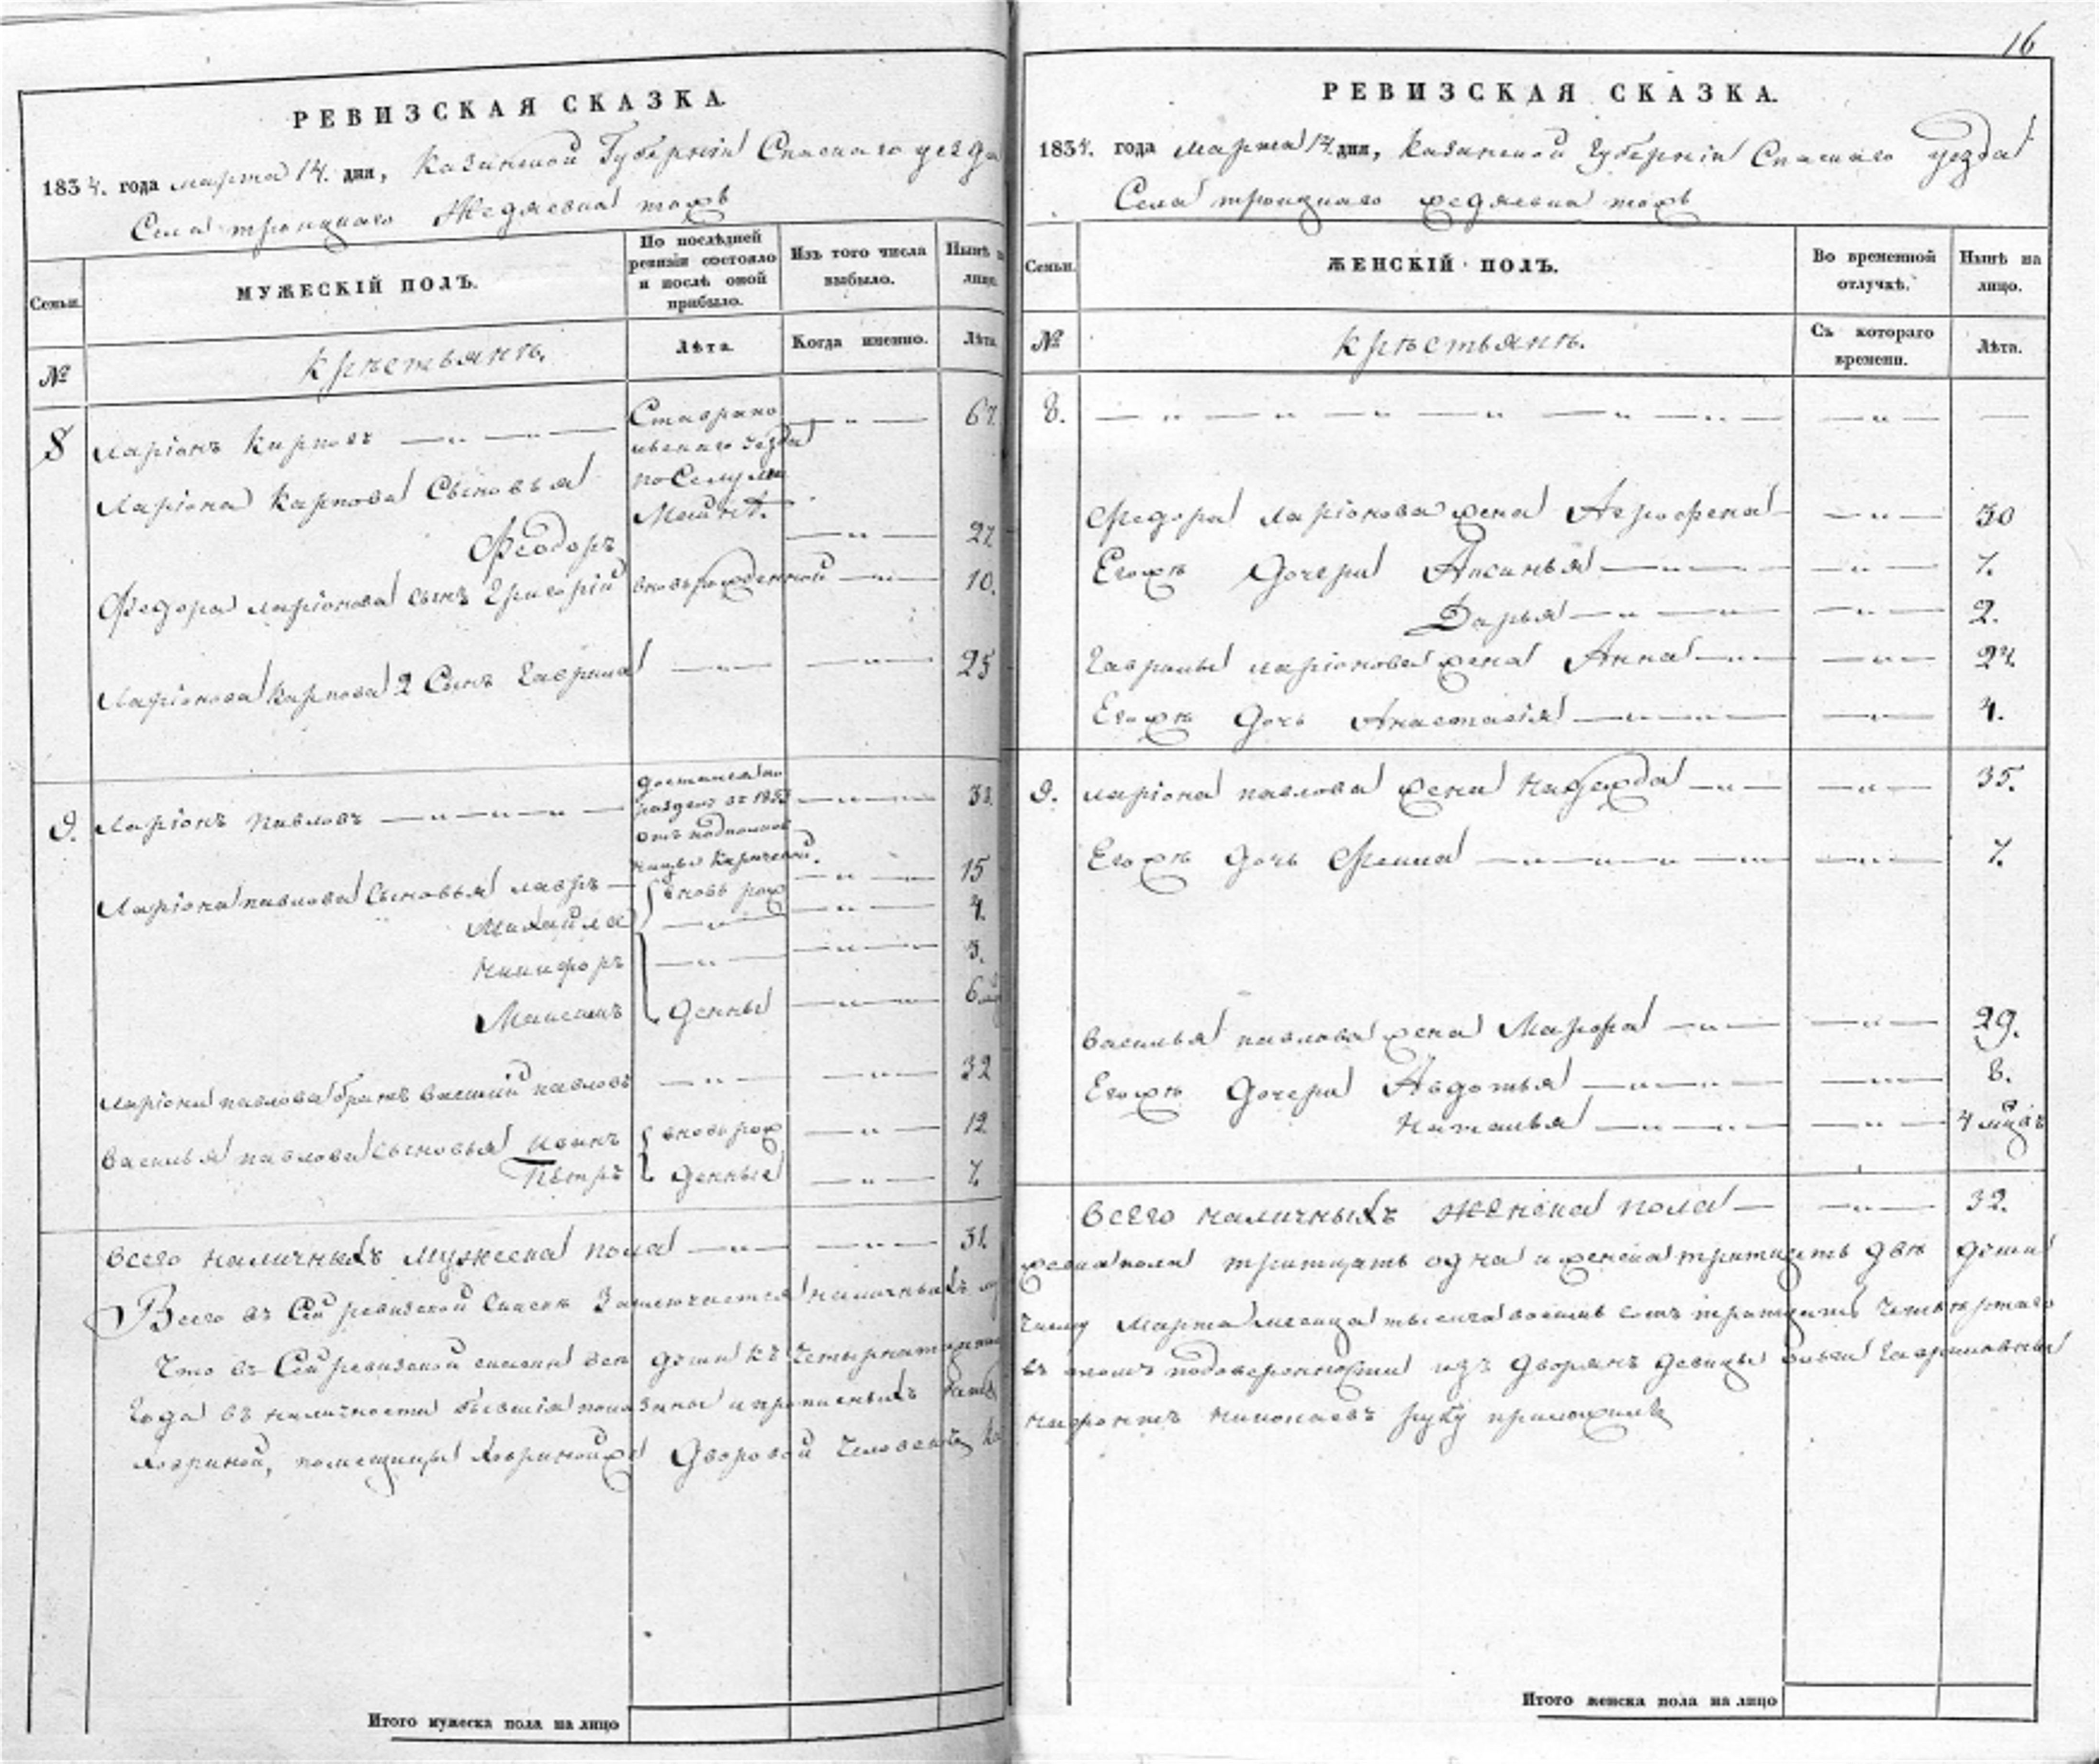 16
РЕВИЗСКАЯ СКАЗКА.
1834. года марта 14. дня, Казанской Губерніи Спаскаго уезда
Села троицкаго Жедяевка тожъ
Семьи.
МУЖЕСКІЙ ПОЛЪ.
По послѣдней ревизіи состояло и послѣ оной прибыло.
Изъ того числа выбыло.
Нынѣ на лицо.
№
крѣстьянѣ.
Лѣта.
Когда именно.
Лѣта.
8 Ларіонъ Карповъ — „ — „ — 67.
Ларіона Карпова Сыновья
Феодоръ — „ — 27.
Федора ларіонова сынъ Григорій вновьрожденной — „ — 10.
Ларіонова Карпова 2 Сынъ Гаврила — „ — — „ — 25
9. Ларіонъ павловъ — „ — „ — — „ — „ — 33.
Ларіона павлова Сыновья лавръ — вновь рож — „ — 15
Михайла — „ — — „ — 4.
Никифоръ — „ — — „ — 3.
Максимъ денны — „ — 6
Ларіона павлова братъ василий павловъ — „ — — „ — 32
Василья павлова сыновья иванъ вновь рож — „ — 12
Пѣтръ денные — „ — 7.
всего наличныхъ мужеска пола — „ — — „ — 31.
Всего въ Сей ревизской Сказке Заключается наличныхъ му
Что въ Сей ревизской сказки все души къ четырнатцатому
Года въ наличности бывшія показаны и прописныхъ
помещицы дворовой человекъ
Итого мужеска пола на лицо
РЕВИЗСКАЯ СКАЗКА.
1834. года марта 14. дня, Казанской Губерніи Спаскаго уезда
Села троицкаго жедяевка тожъ
Семьи.
ЖЕНСКІЙ ПОЛЪ.
Во временной отлучкѣ.
Нынѣ на лицо.
№
крѣстьянѣ.
Съ котораго времени.
Лѣта.
8. — „ — „ — „ — „ — „ — — „ — —
Федора ларіонова жена Агрофена — „ — 30
Егожъ дочери Аксинья — „ — — „ — 7.
Дарья — „ — — „ — 2.
Гаврилы ларіонова жена Анна — „ — — „ — 24.
Егожъ дочь Анастасія — „ — — „ — 4.
9. ларіона павлова жена Надежда — „ — — „ — 35.
Егожъ дочь Фекла — „ — „ — „ — — „ — 7.
василья павлова жена Марфа — „ — — „ — 29.
Егожъ дочери Авдотья — „ — „ — — „ — 8.
Наталья — „ — „ — — „ — 4
всего наличныхъ женска пола — — „ — 32.
жескапола тритцать одна и женска тритцать две души
числу Марта месеца тысеча восемь сотъ тритцать четвертаго
въ томъ изъ дворянъ девицы Гавриловны
николаевъ руку приложилъ
Итого женска пола на лицо